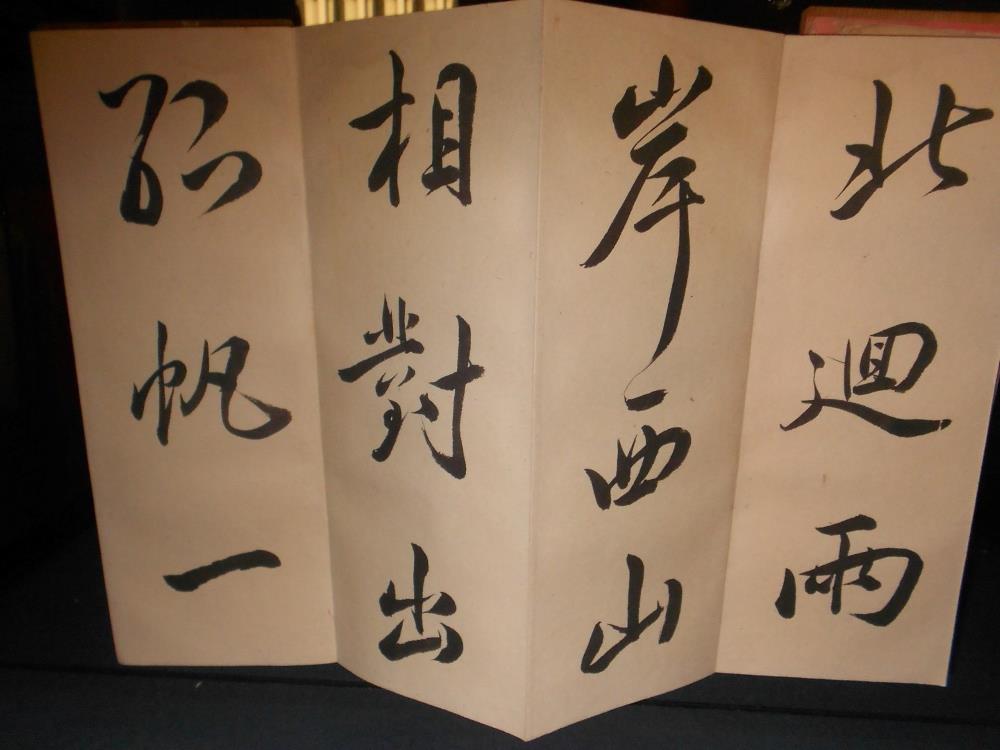 北迴兩
岸西山
相對出
孤帆一